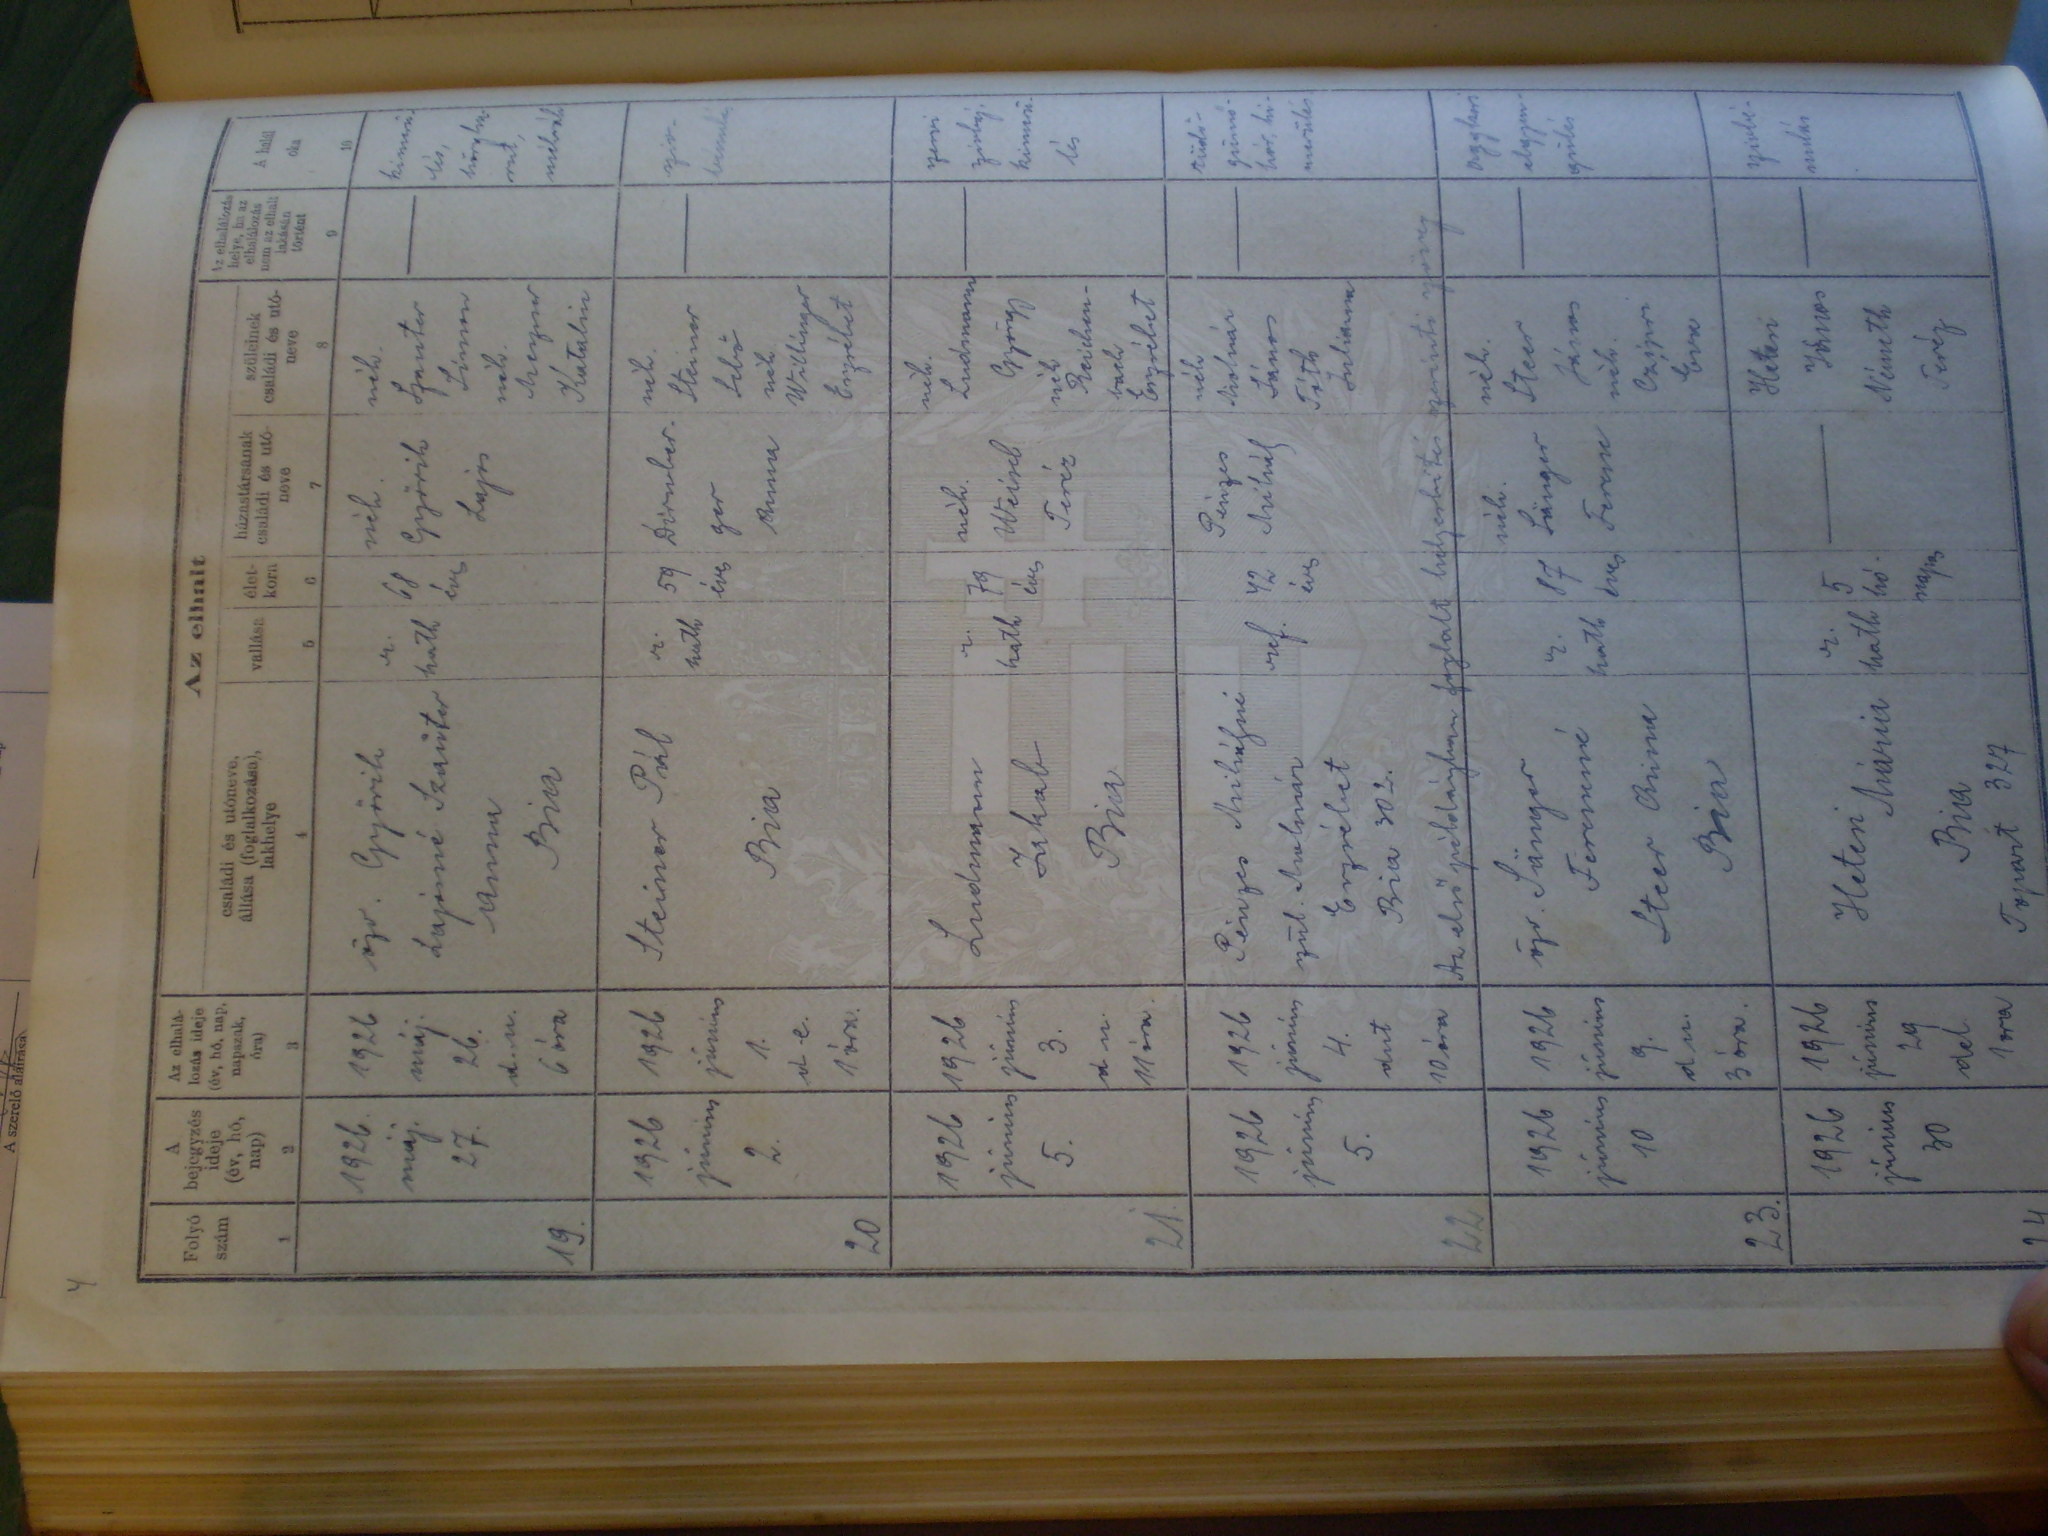 4
Az elhalt
Folyó
szám
A
bejegyzés
ideje
(év, hó,
nap)
Az elhalá-
lozás ideje
(év, hó, nap,
napszak,
óra)
családi és utóneve,
állása (foglalkozása),
lakhelye
vallása
élet-
kora
házastársának
családi és utó-
neve
szüleinek
családi és utó-
neve
Az elhalálozás
helye, ha az
elhalálozás
nem az elhalt
lakásán
történt
A halál
oka
1
2
3
4
5
6
7
8
9
10
19.
1926.
máj.
27.
1926
máj.
26.
d. u.
6 óra
özv. Györik
Lajosné Szauter
Anna
Bia
r.
kath
68
éves
néh.
Györik
Lajos
néh.
Szauter
Simon
néh.
Mezner
Katalin
20
1926
június
2.
1926
június
1.
d. e.
1 óra.
Steiner Pál
Bia
r.
kath
59
éves
Dirnber-
ger
Anna
néh.
Steiner
néh.
Willinger
Erzsébet
21.
1926
június
5.
1926
június
3.
d. u.
11 óra.
Ludmann
Jakab
Bia
r.
kath
79
éves
néh.
Teréz
néh.
Ludmann
György
néh.
Reichen-
bach
Erzsébet
szervi
szívbaj,
kimerü-
lés
22
1926
június
5.
1926
június
4.
10 óra
Pénzes Mihályné
szül. Molnár
Erzsébet
Bia 302.
ref.
42
éves
Pénzes
Mihály
néh.
Molnár
János
Tóth
Juliánna
tüdő-
gümő-
kór, ki-
merülés
Az első példányban foglalt kiigazítás szerinti szöveg
23.
1926
június
10
1926
június
9.
d. u.
3 óra.
özv. Sänger
Ferencné
Steer Anna
Bia
r.
kath
87
éves
néh.
Sänger
Ferenc
néh.
Steer
János
néh.
Czipri
Éva
aggkori
elgyen-
gülés
24
1926
június
30
1926
június
29
del.
1 óra
Heteri Mária
Bia
Topart 327
r.
kath
5
hó.
napos
Heteri
János
Németh
Teréz
A szerelő aláírása